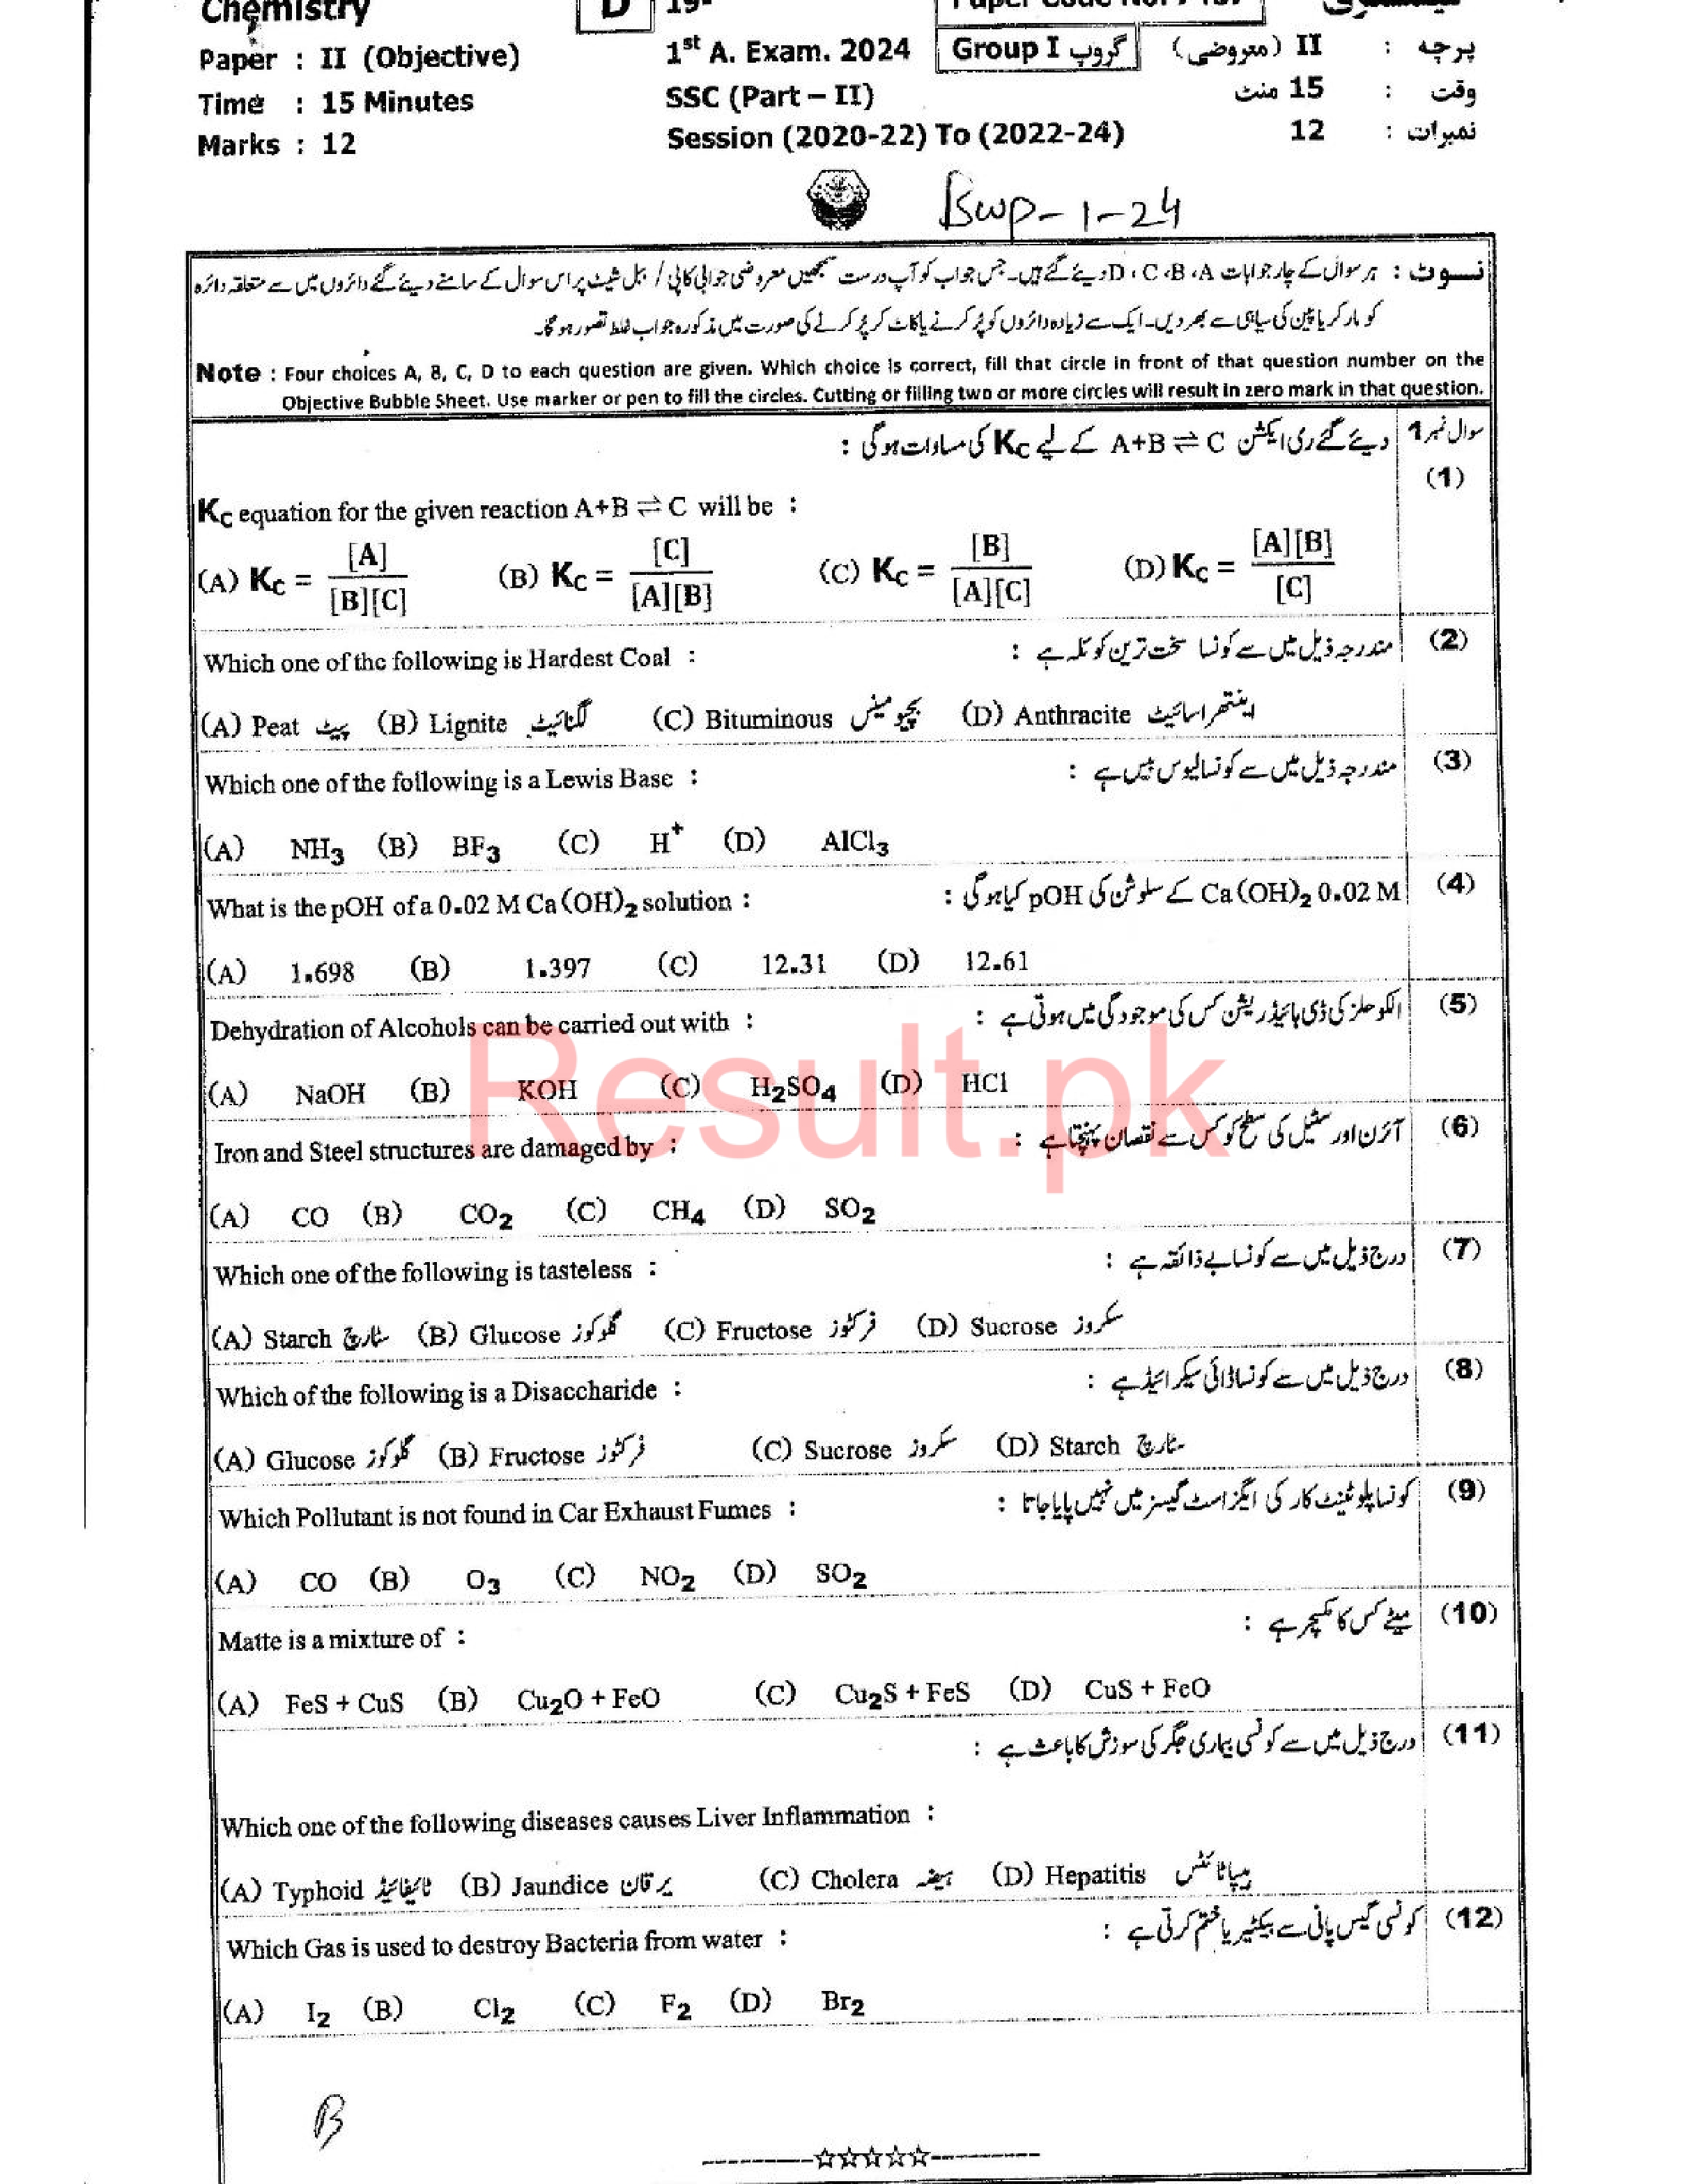 Chemistry D 19- Paper Code No. کیمسٹری
Paper : II (Objective) 1st A. Exam. 2024 Group I گروپ پرچہ : II (معروضی)
Time : 15 Minutes SSC (Part – II) وقت : 15 منٹ
Marks : 12 Session (2020-22) To (2022-24) نمبرات : 12
BWP-1-24
نوٹ : ہر سوال کے چار جوابات D ، C ، B ، A دیئے گئے ہیں۔ جس جواب کو آپ درست سمجھیں معروضی جوابی کاپی / ببل شیٹ پر اس سوال کے سامنے دیئے گئے دائروں میں سے متعلقہ دائرہ
کو مارکر یا پین کی سیاہی سے بھر دیں۔ ایک سے زیادہ دائروں کو پُر کرنے یا کاٹ کر پُر کرنے کی صورت میں مذکورہ جواب غلط تصور ہو گا۔
Note : Four choices A, B, C, D to each question are given. Which choice is correct, fill that circle in front of that question number on the
Objective Bubble Sheet. Use marker or pen to fill the circles. Cutting or filling two or more circles will result in zero mark in that question.
سوال نمبر 1 دیئے گئے ری ایکشن A+B ⇌ C کے لیے Kc کی مساوات ہو گی :
(1)
Kc equation for the given reaction A+B ⇌ C will be :
(A) Kc = [A]/[B][C] (B) Kc = [C]/[A][B] (C) Kc = [B]/[A][C] (D) Kc = [A][B]/[C]
Which one of the following is Hardest Coal : مندرجہ ذیل میں سے کونسا سخت ترین کوئلہ ہے : (2)
(A) Peat پیٹ (B) Lignite لگنائیٹ (C) Bituminous بچیومینس (D) Anthracite اینتھراسائیٹ
Which one of the following is a Lewis Base : مندرجہ ذیل میں سے کونسا لیوس بیس ہے : (3)
(A) NH3 (B) BF3 (C) H+ (D) AlCl3
What is the pOH of a 0.02 M Ca(OH)2 solution : 0.02 M Ca(OH)2 کے سلوشن کی pOH کیا ہو گی : (4)
(A) 1.698 (B) 1.397 (C) 12.31 (D) 12.61
Dehydration of Alcohols can be carried out with : الکوحلز کی ڈی ہائیڈریشن کس کی موجودگی میں ہوتی ہے : (5)
(A) NaOH (B) KOH (C) H2SO4 (D) HCl
Result.pk
Iron and Steel structures are damaged by : آئرن اور سٹیل کی سطح کو کس سے نقصان پہنچتا ہے : (6)
(A) CO (B) CO2 (C) CH4 (D) SO2
Which one of the following is tasteless : درج ذیل میں سے کونسا بے ذائقہ ہے : (7)
(A) Starch سٹارچ (B) Glucose گلوکوز (C) Fructose فرکٹوز (D) Sucrose سکروز
Which of the following is a Disaccharide : درج ذیل میں سے کونسا ڈائی سیکرائیڈ ہے : (8)
(A) Glucose گلوکوز (B) Fructose فرکٹوز (C) Sucrose سکروز (D) Starch سٹارچ
Which Pollutant is not found in Car Exhaust Fumes : کونسا پلوٹینٹ کار کی ایگزاسٹ گیسز میں نہیں پایا جاتا : (9)
(A) CO (B) O3 (C) NO2 (D) SO2
Matte is a mixture of : میٹے کس کا مکسچر ہے : (10)
(A) FeS + CuS (B) Cu2O + FeO (C) Cu2S + FeS (D) CuS + FeO
درج ذیل میں سے کونسی بیماری جگر کی سوزش کا باعث ہے : (11)
Which one of the following diseases causes Liver Inflammation :
(A) Typhoid ٹائیفائیڈ (B) Jaundice یرقان (C) Cholera ہیضہ (D) Hepatitis ہیپاٹائٹس
Which Gas is used to destroy Bacteria from water : کونسی گیس پانی سے بیکٹیریا ختم کرتی ہے : (12)
(A) I2 (B) Cl2 (C) F2 (D) Br2
B
----------☆☆☆☆☆----------